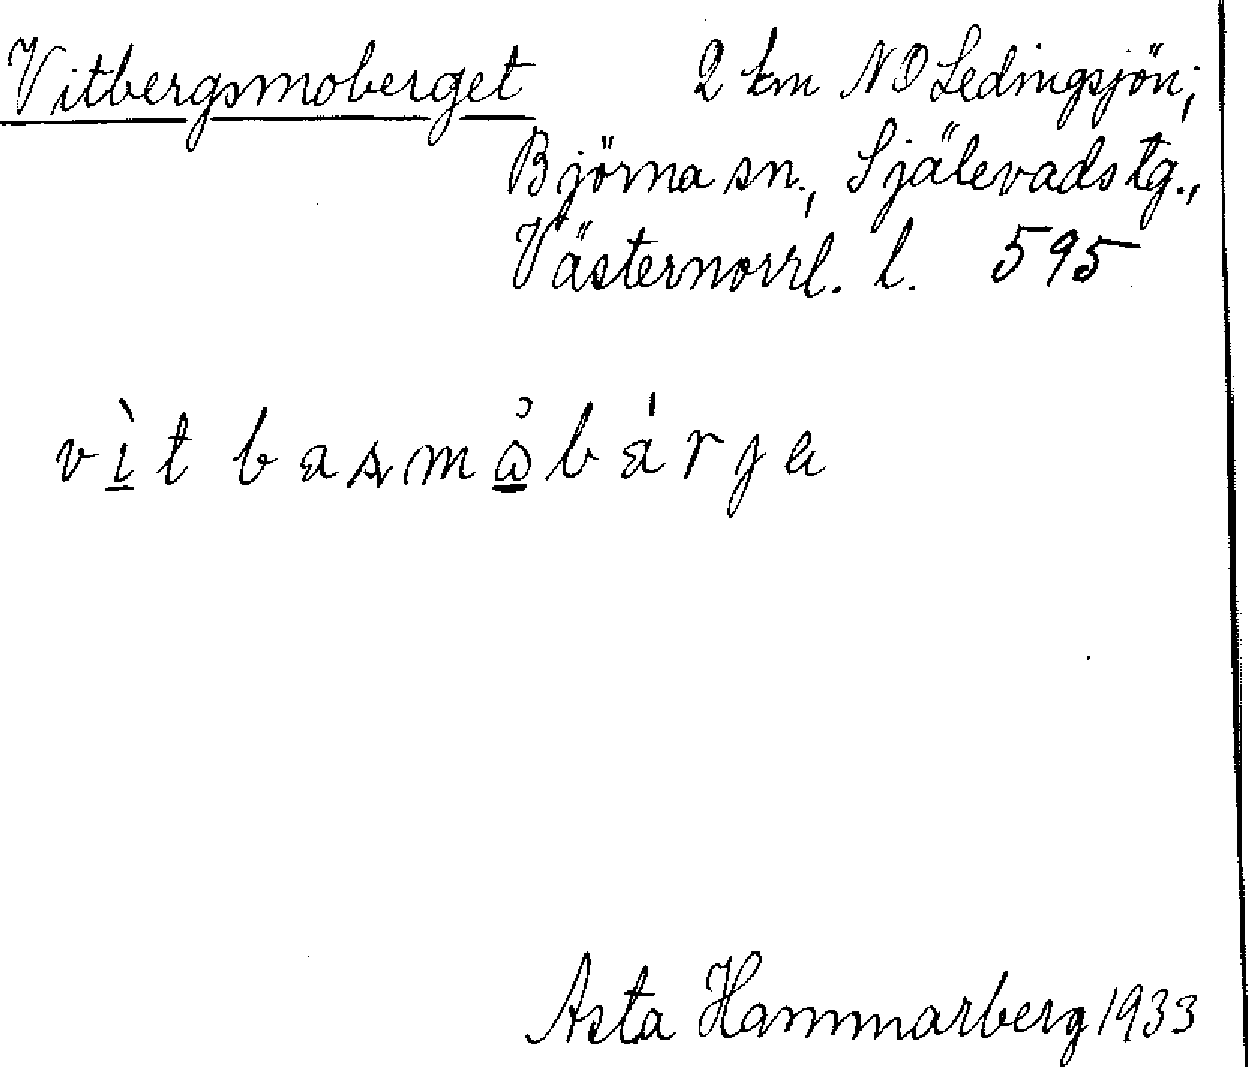 Vitbergsmoberget 2 km NO Ledingsjön;
Björna sn., Själevads tg.,
Västernorrl. l. 595
vìt basmåbárja
Asta Hammarberg 1933